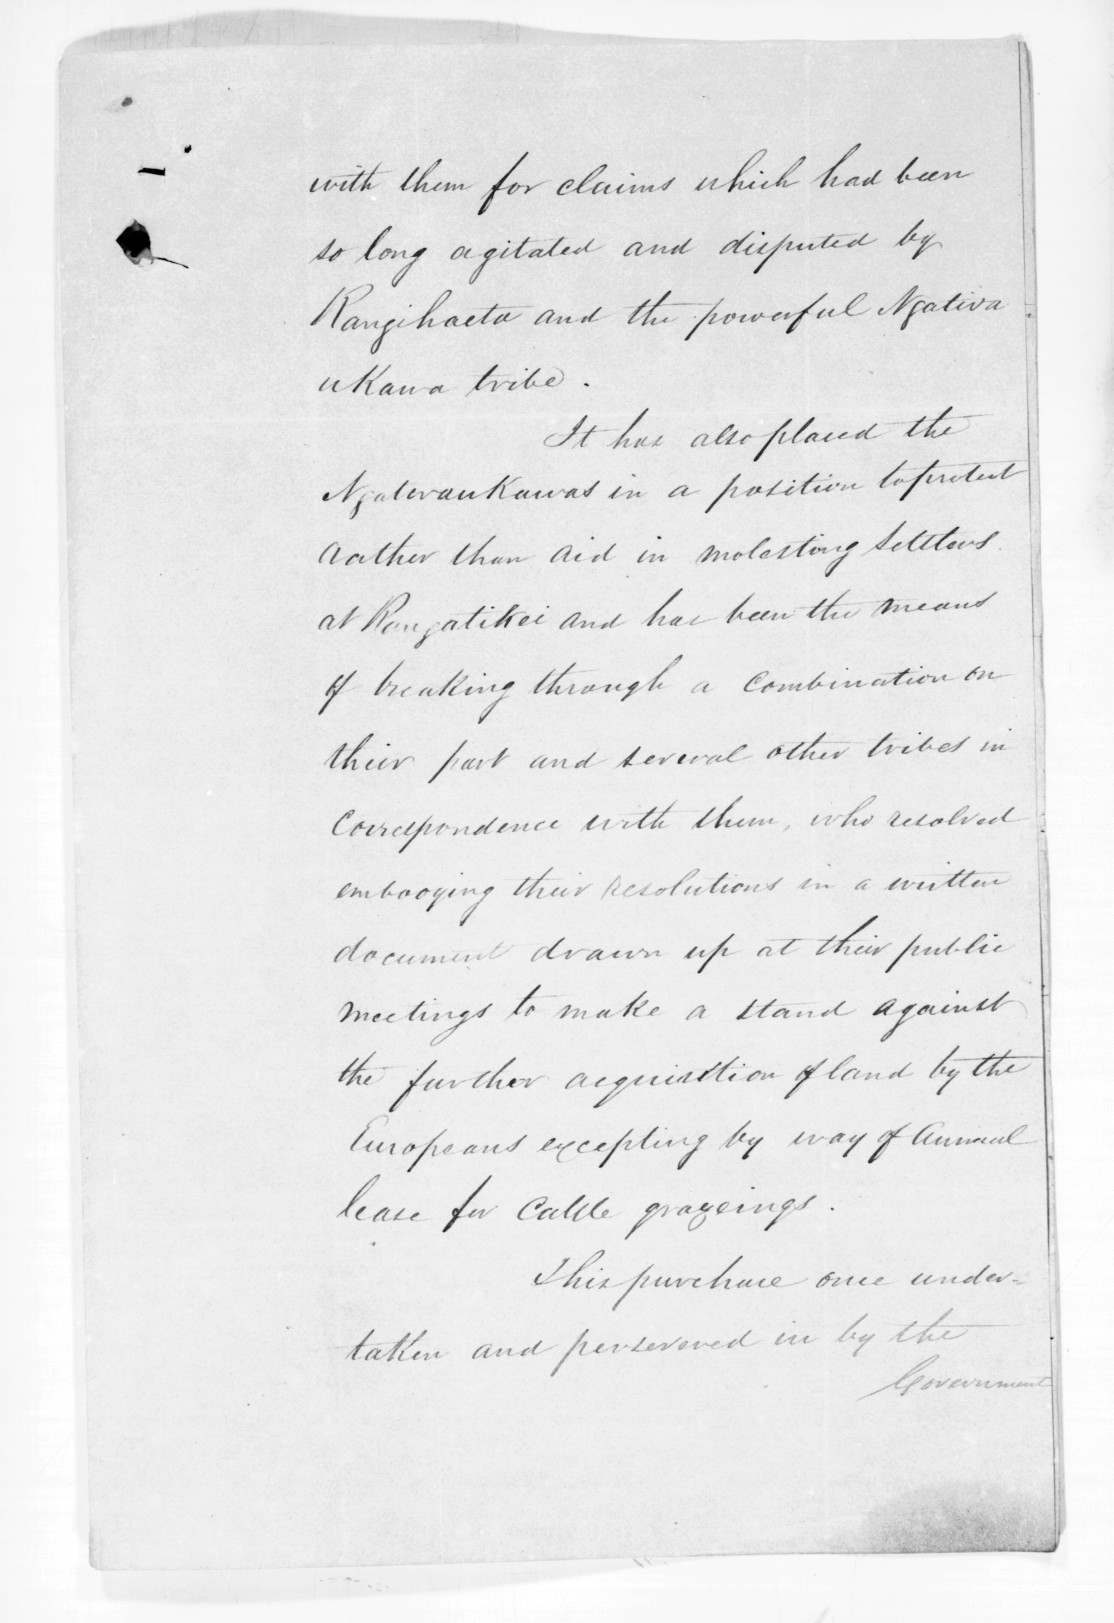 with them for claims which had been
so long agitated and disputed by
Rangihaeta and the powerful Ngativa
uKawa tribe.
It has also placed the
NgatevauKawas in a position to protect
rather than aid in molesting Settlers
at Rangatikei and has been the means
of breaking through a combination on
their part and several other tribes in
correspondence with them, who resolved
embodying their resolutions in a written
document drawn up at their public
meetings to make a stand against
the further acquisition of land by the
Europeans excepting by way of Annual
lease for Cattle grazeings.
This purchase once under-
taken and persevered in by the
Government